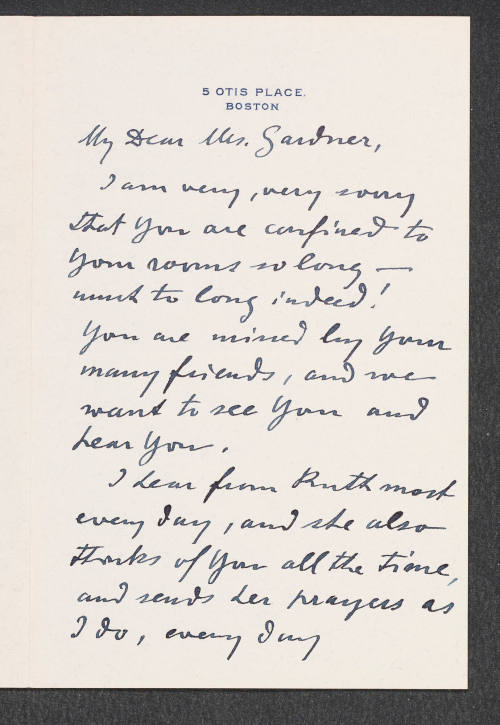 5 OTIS PLACE,
BOSTON
My Dear Mrs. Gardner,
I am very, very sorry
that you are confined to
your rooms so long —
much to long indeed!
You are missed by your
many friends, and we
want to see you and
hear you.
I hear from Ruth most
every day, and she also
thinks of you all the time,
and sends her prayers as
I do, every day